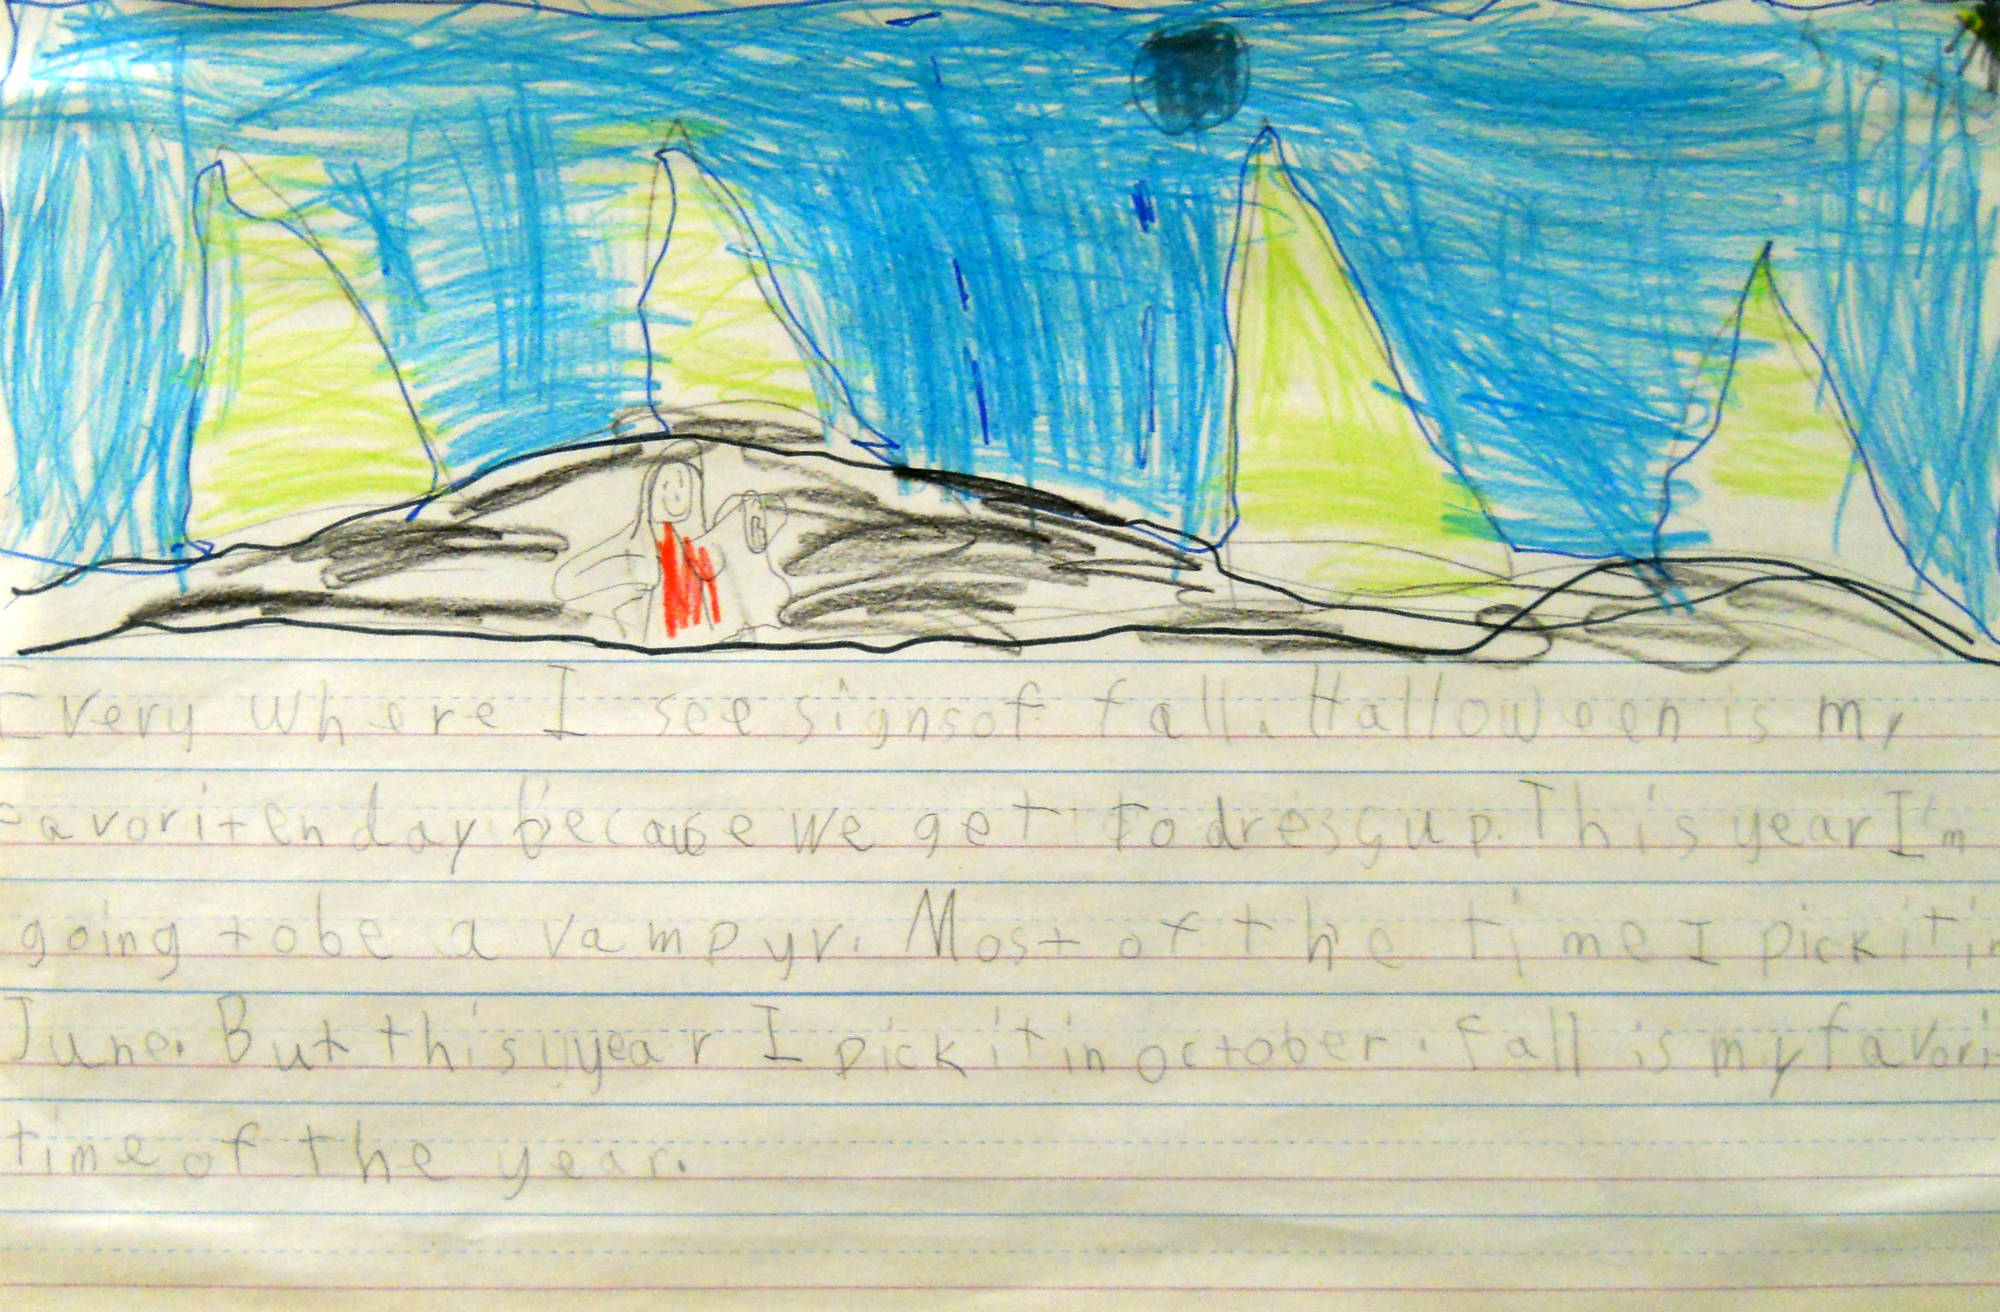 Every where I see signs of fall. Halloween is my
favoriten day because we get to dress up. This year I'm
going to be a vampyr. Most of the time I pick it in
June. But this yyear I pick it in october. fall is my favori
time of the year.